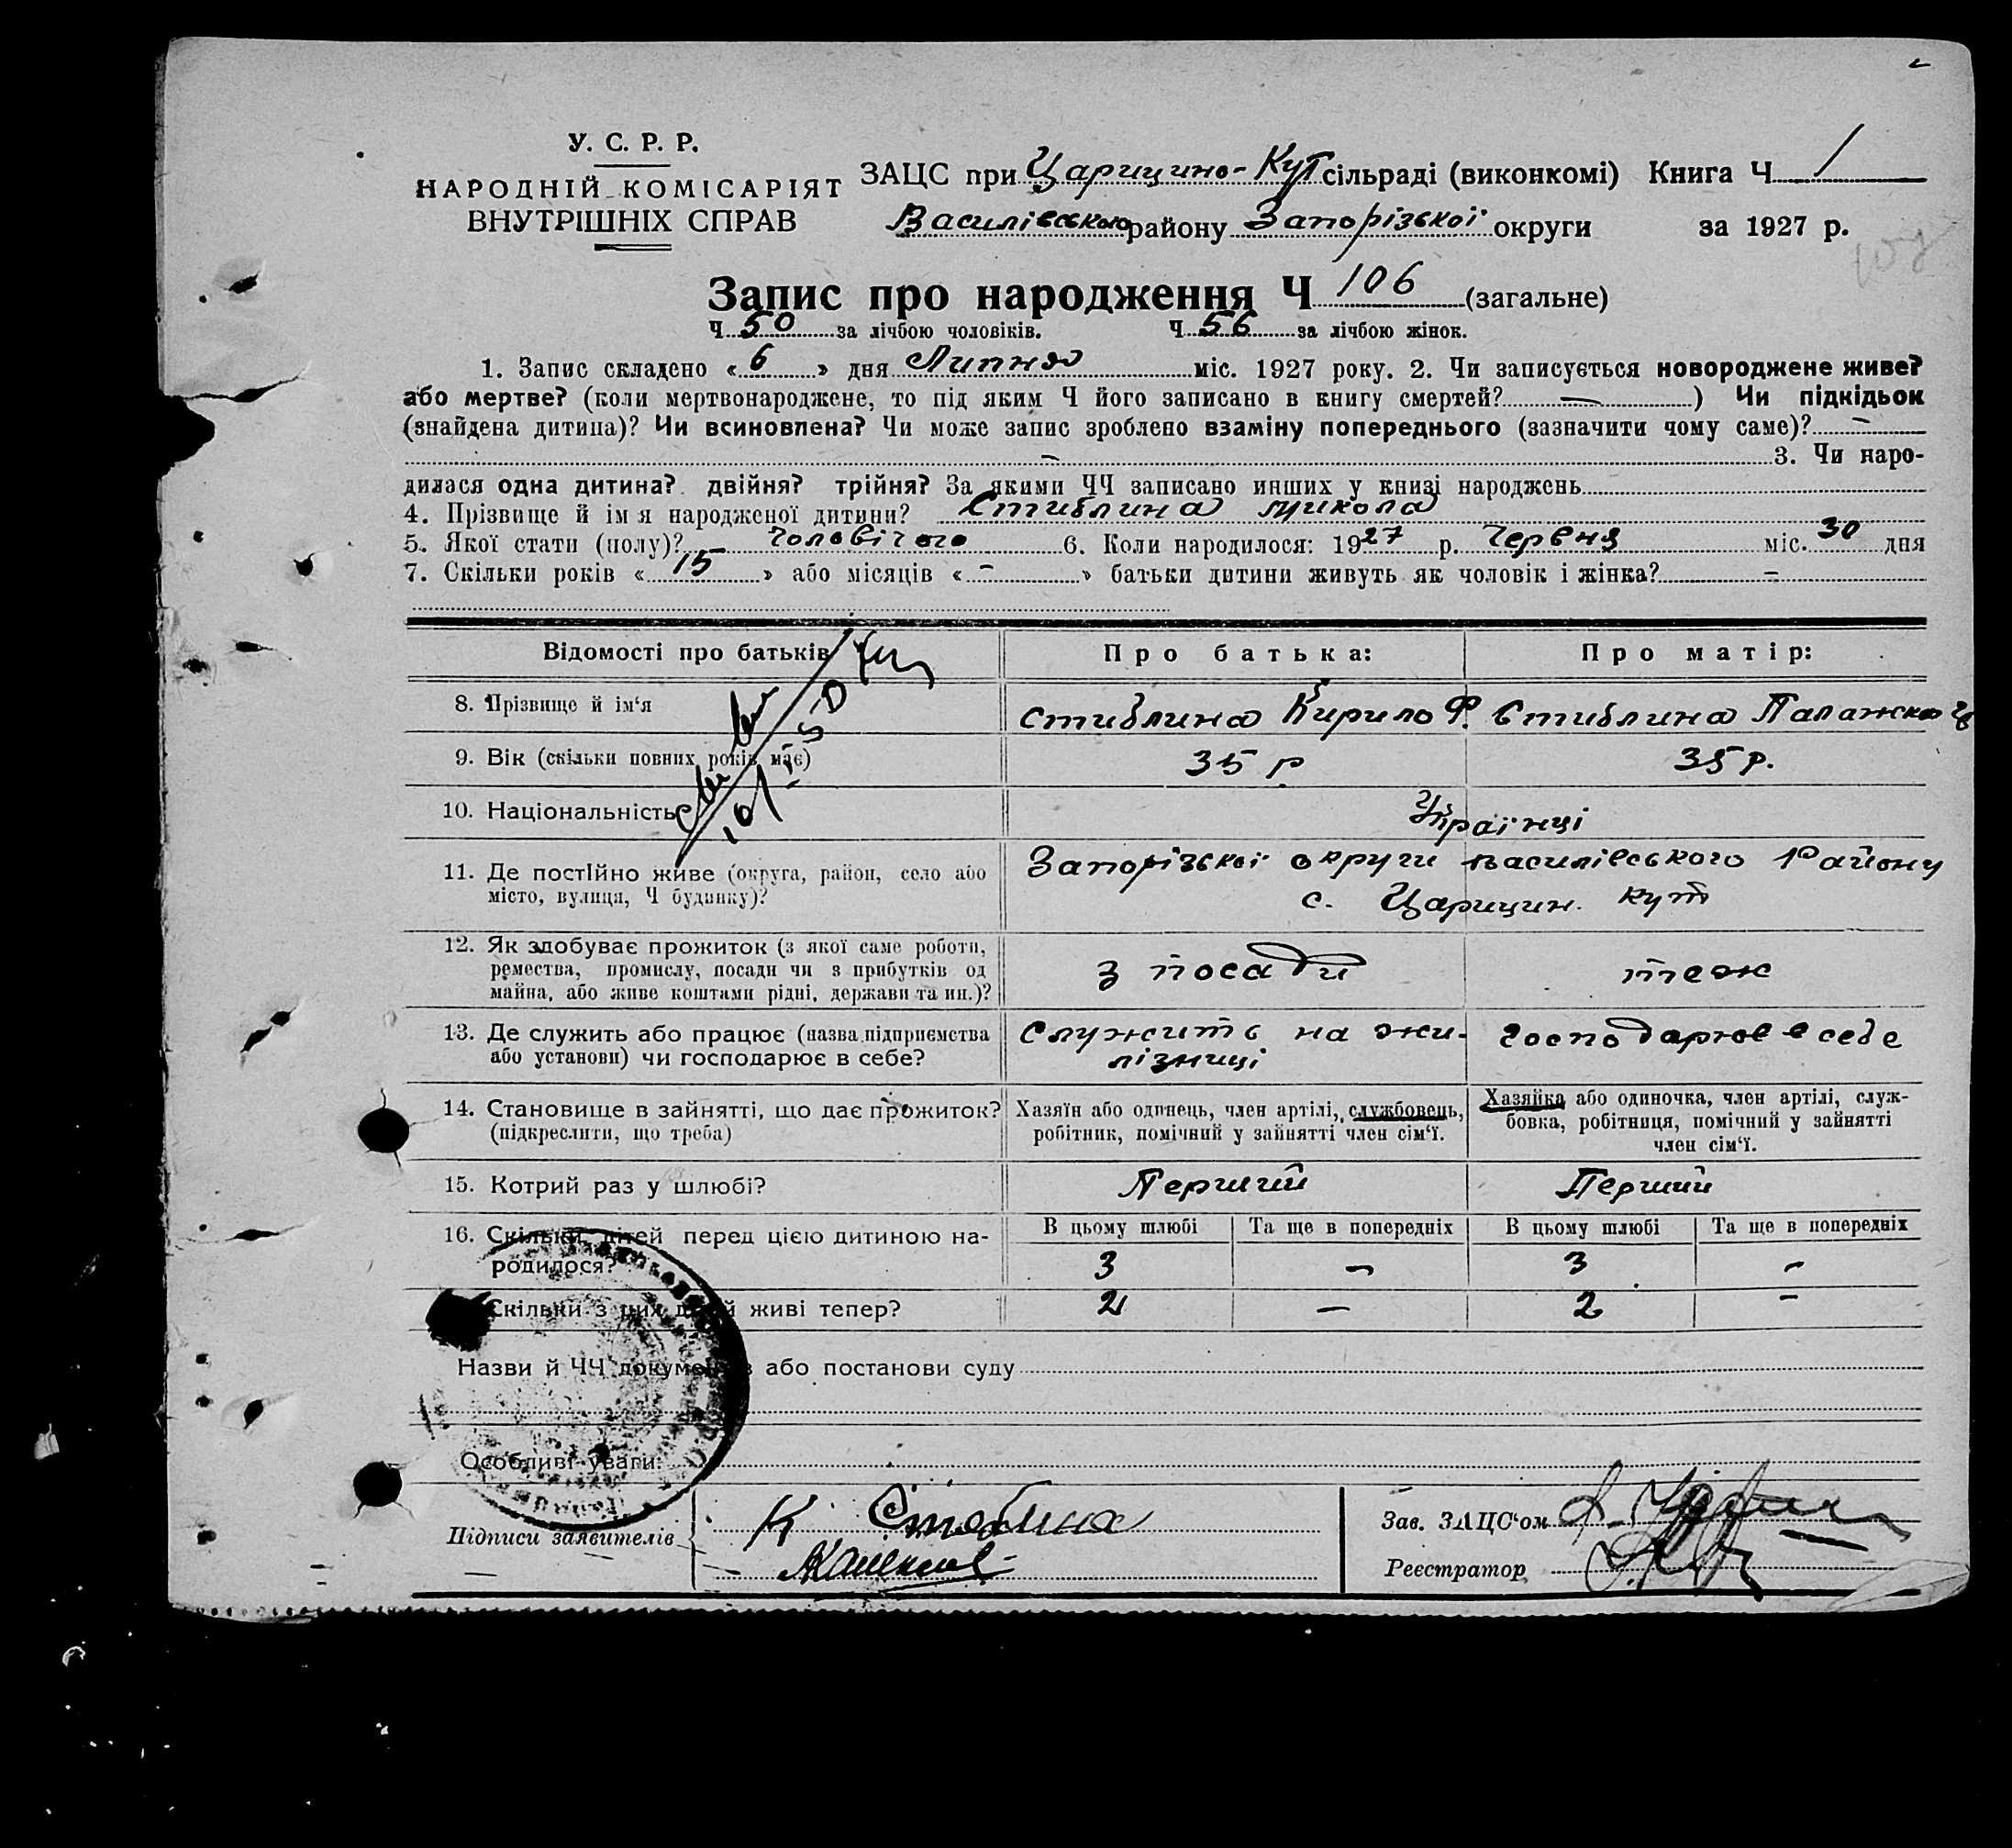 У. С. Р. Р.
НАРОДНІЙ КОМІСАРІЯТ
ВНУТРІШНІХ СПРАВ
ЗАЦС при Царицино-Кут сільраді (виконкомі) Книга Ч 1
Василівського району Запорізької округи за 1927 р.
Запис про народження Ч 106 (загальне)
Ч 50 за лічбою чоловіків. Ч 56 за лічбою жінок.
1. Запис складено « 6 » дня Липня міс. 1927 року. 2. Чи записується новороджене живе?
або мертве? (коли мертвонароджене, то під яким Ч його записано в книгу смертей? — ) Чи підкідьок
(знайдена дитина)? Чи всиновлена? Чи може запис зроблено взаміну попереднього (зазначити чому саме)? —
— 3. Чи наро-
дилася одна дитина? двійня? трійня? За якими ЧЧ записано инших у книзі народжень
4. Прізвище й ім я народженої дитини? Стиблина Микола
5. Якої стати (полу)? Чоловічого 6. Коли народилося: 1927 р. Червня міс. 30 дня
7. Скільки років « 15 » або місяців « - » батьки дитини живуть як чоловік і жінка? —
Відомості про батьків Про батька: Про матір:
8. Прізвище й ім‘я Стиблина Кирило Ф. Стиблина Палажка
9. Вік (скільки повних років має) 35 р 35 р.
10. Національність Українці
11. Де постійно живе (округа, район, село або Запорізької округи Василівського Району
місто, вулиця, Ч будинку)? с. Царицин. Кут
12. Як здобуває прожиток (з якої саме роботи,
ремества, промислу, посади чи з прибутків од з посади теж
майна, або живе коштами рідні, держави та ин.)?
13. Де служить або працює (назва підприємства Служить на жи- господарює в себе
або установи) чи господарює в себе? лізниці
14. Становище в зайнятті, що дає прожиток? Хазяїн або одинець, член артілі, службовець, Хазяйка або одиночка, член артілі, служ-
(підкреслити, що треба) робітник, помічний у зайнятті член сім‘ї. бовка, робітниця, помічний у зайнятті
член сім‘ї.
15. Котрий раз у шлюбі? Перший Перший
16. Скільки дітей перед цією дитиною на- В цьому шлюбі Та ще в попередніх В цьому шлюбі Та ще в попередніх
родилося? 3 — 3 -
Скільки з цих дітей живі тепер? 2 — 2 -
Назви й ЧЧ документів або постанови суду
Особливі уваги:
Підписи заявителів К Стеблина
Зав. ЗАЦС‘ом
Реестратор